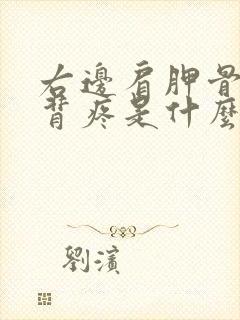 右邊肩胛骨
背疼是什麼
劉濱